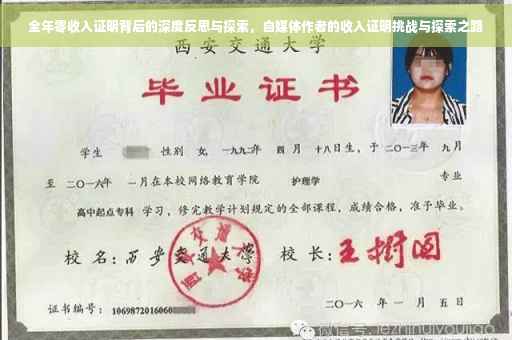 全年零收入证明背后的深度反思与探索，自媒体作者的收入证明挑战与探索之路
西安交通大学
毕业证书
学生 性别 女，一九九二年 四月 十八日生，于二〇一三年 九月
至 二〇一六年 一月在本校网络教育学院 护理学 专业
高中起点专科 学习，修完教学计划规定的全部课程，成绩合格，准予毕业。
校名：西安交通大学 校长：王树国
西安交通大学
证书编号：1069872016060 二〇一六年 一月 五日
微信号: jezhinuiyoujiao